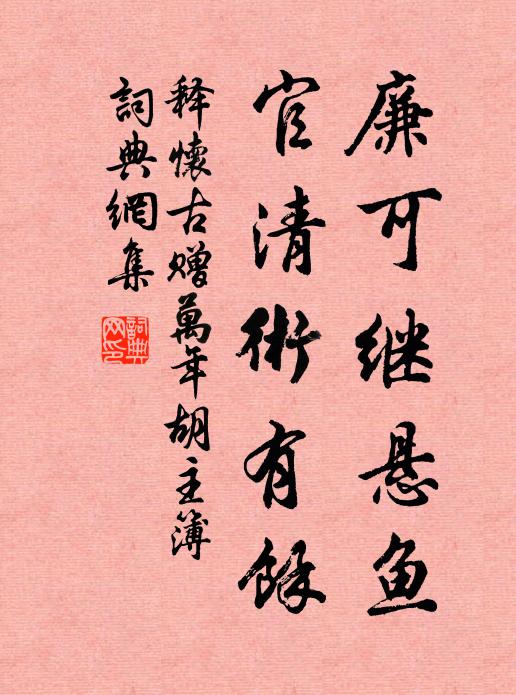 廉可继悬鱼
官清術有餘
释懷古赠萬年胡主簿
詞典網集
詞典網印